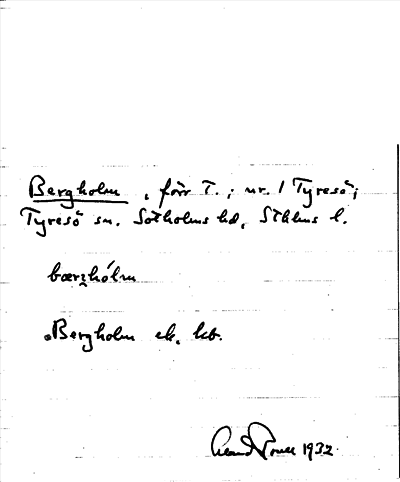 Bergholm, förr T.; nr. 1 Tyresö;
Tyresö sn. Sotholms hd, Sthlms l.
bærʒhólm
Bergholm ek. kb.
1932